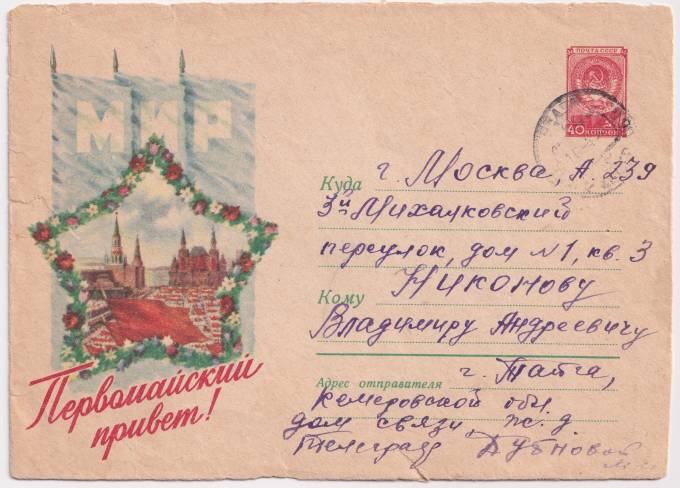 МИР
Первомайский
привет!
ПОЧТА СССР
40 КОПЕЕК
Куда г. Москва, А. 239
3й Михалковский
переулок, дом №1, кв. 3
Кому Никонову
Владимиру Андреевичу
Адрес отправителя г. Тайга,
Кемеровской обл.
дом связи, ж. д
Телеграф Дубновой